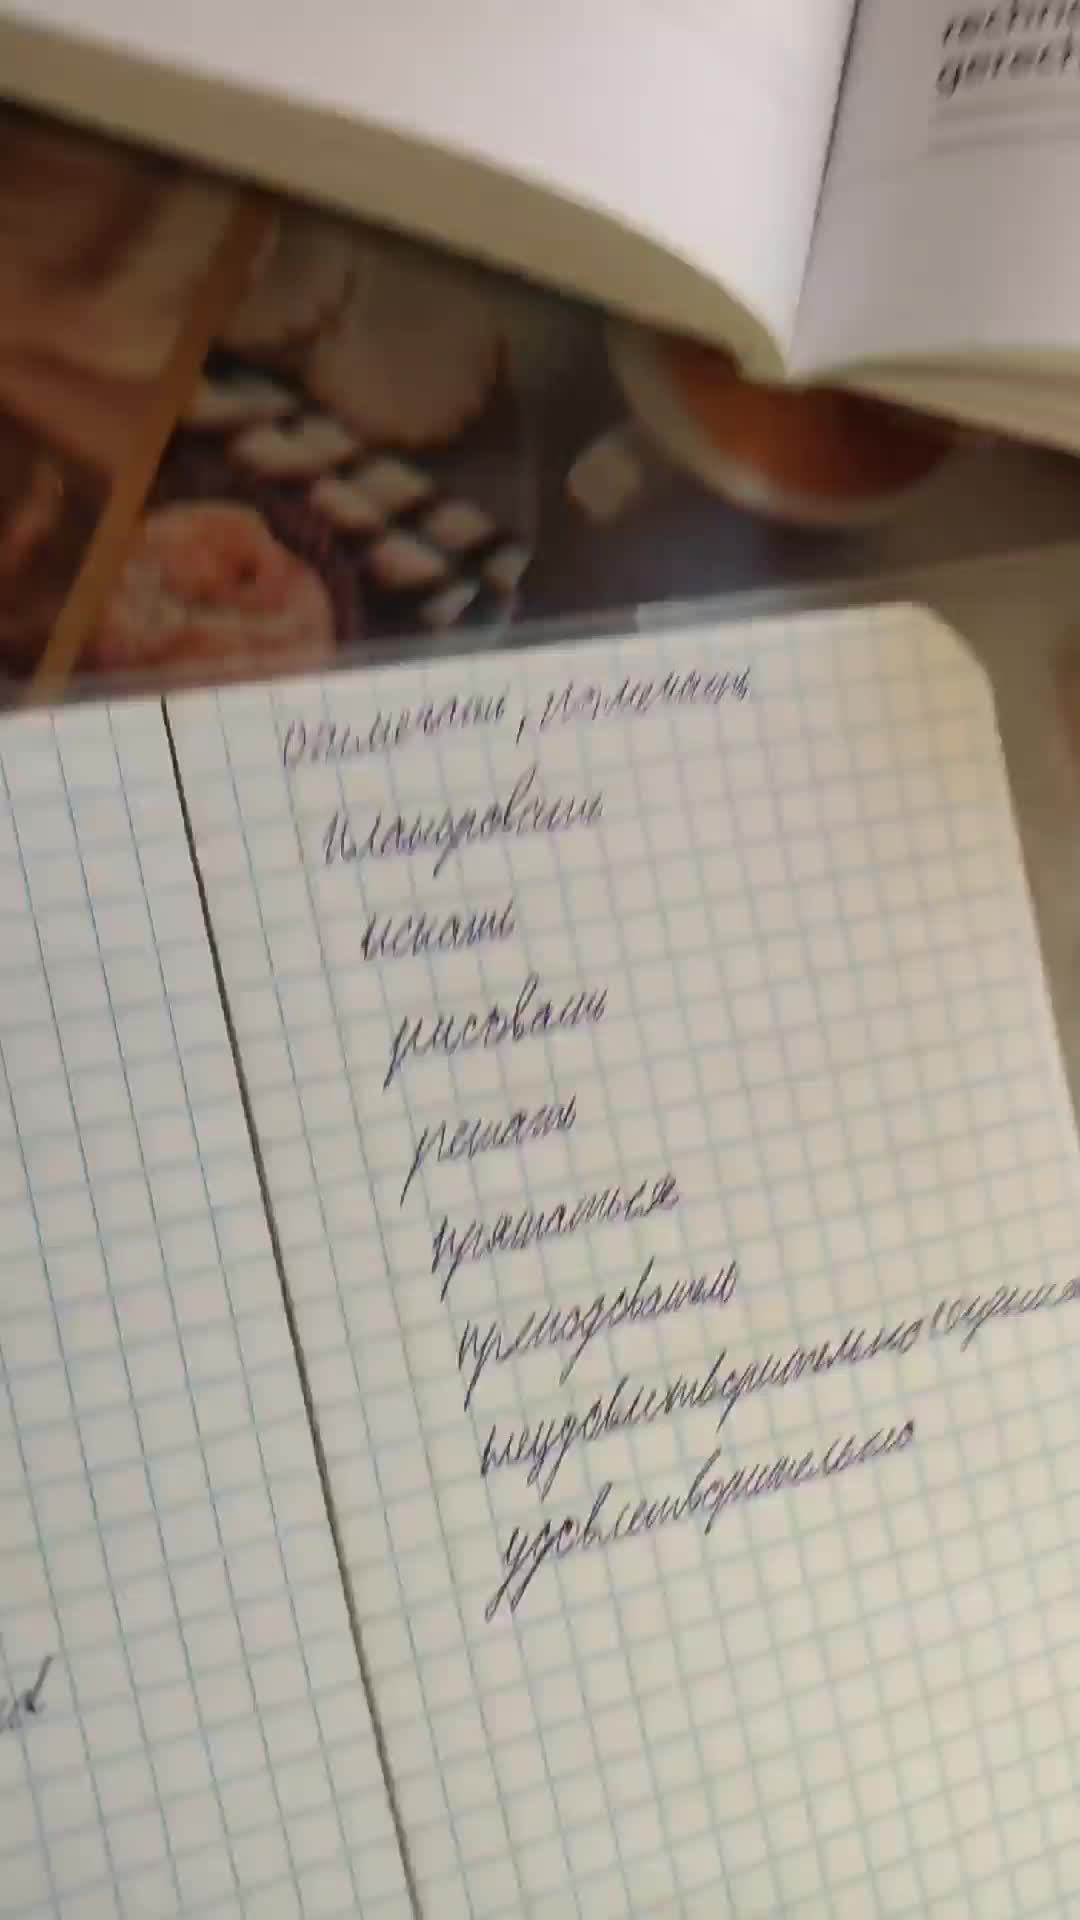 rechn
gerech
отмечать, помечать
планировать
искать
рисовать
решать
прятаться
преподаватель
неудовлетворительно
удовлетворительно